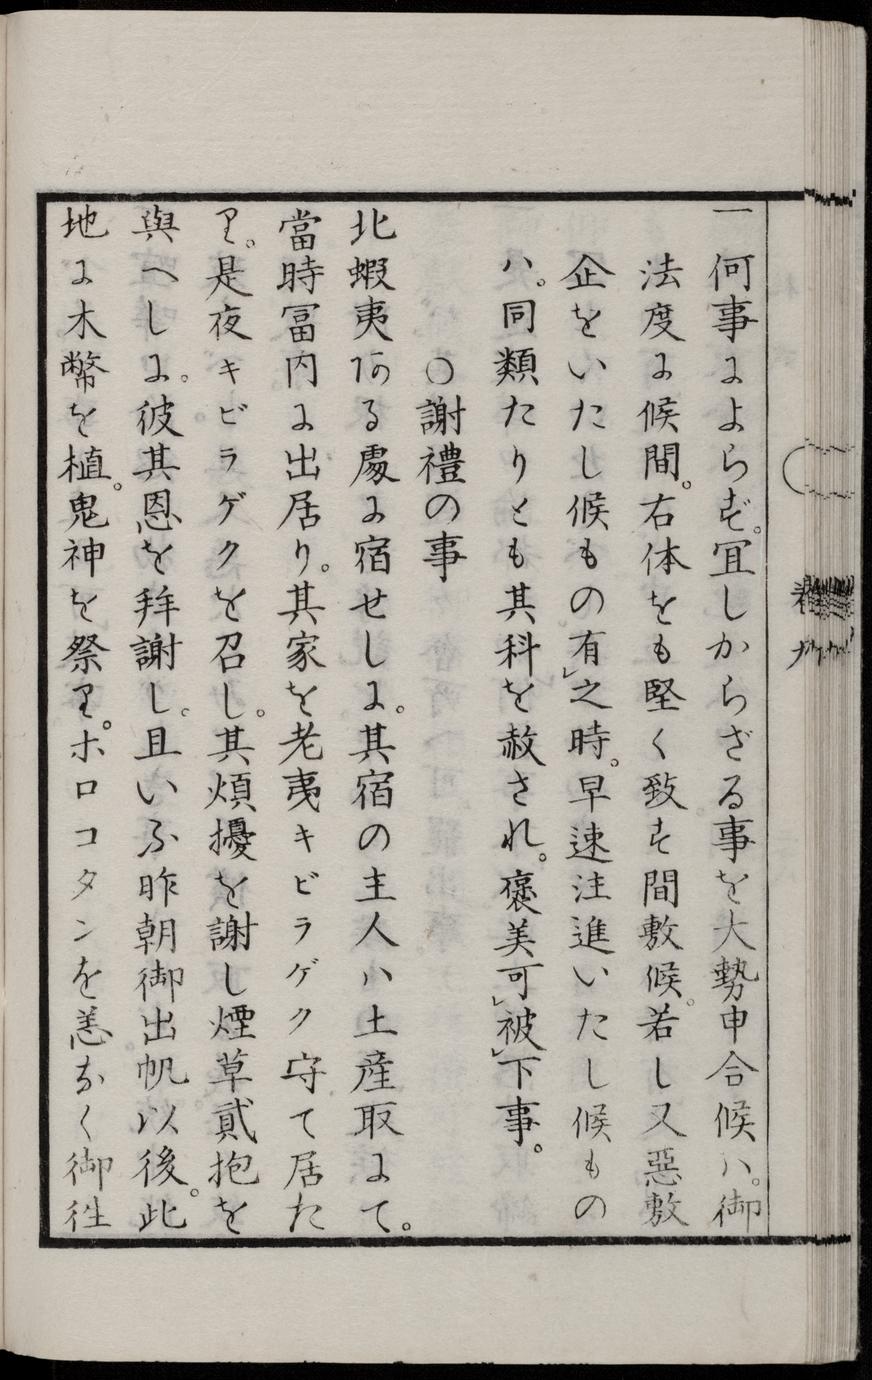 一何事によらず。宜しからざる事を大勢申合候ハ。御
法度に候間。右体をも堅く致す間敷候。若し又惡敷
企をいたし候もの有レ之時。早速注進いたし候もの
ハ。同類たりとも其科を赦され。褒美可レ被レ下事。
〇謝禮の事
北蝦夷ある處に宿せしに。其宿の主人ハ土産取にて。
當時冨内に出居り。其家を老夷キビラゲク守て居た
り。是夜キビラゲクを召し。其煩擾を謝し煙草貳抱を
與へしに。彼其恩を拜謝し。且いふ昨朝御出帆以後。此
地に木幣を植。鬼神を祭り。ホロコタンを恙なく御徃